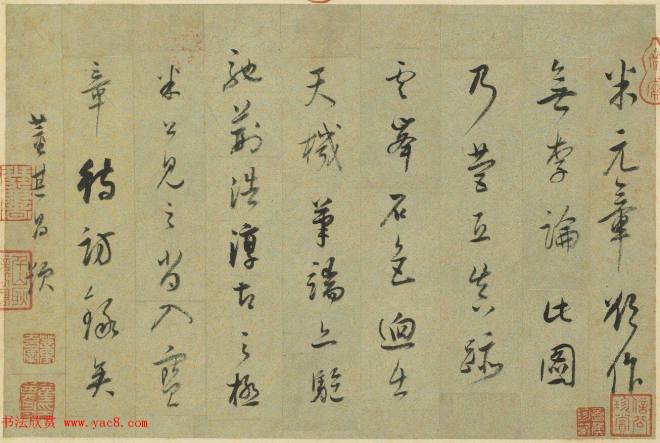 米元章欲作
無李論此圖
乃營丘真蹟
雲峯石色迥出
天機筆端上駈
馳荊浩淳古之極
米公見之當入寶
章待訪錄矣
董其昌題
书法欣赏 www.yac8.com